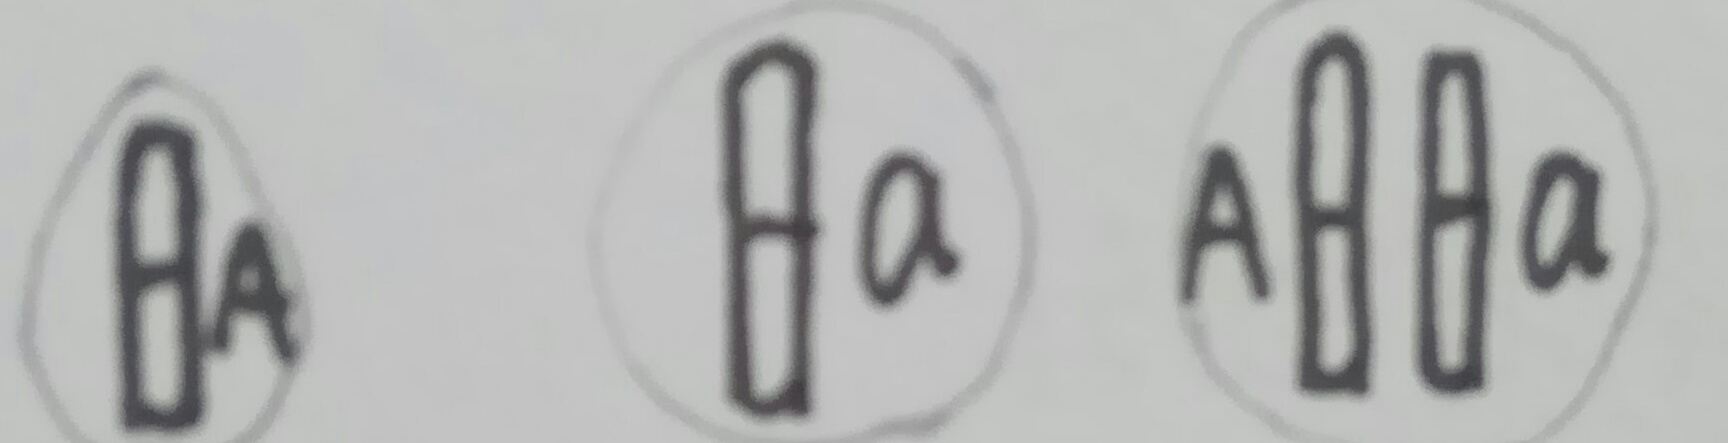 A a A a